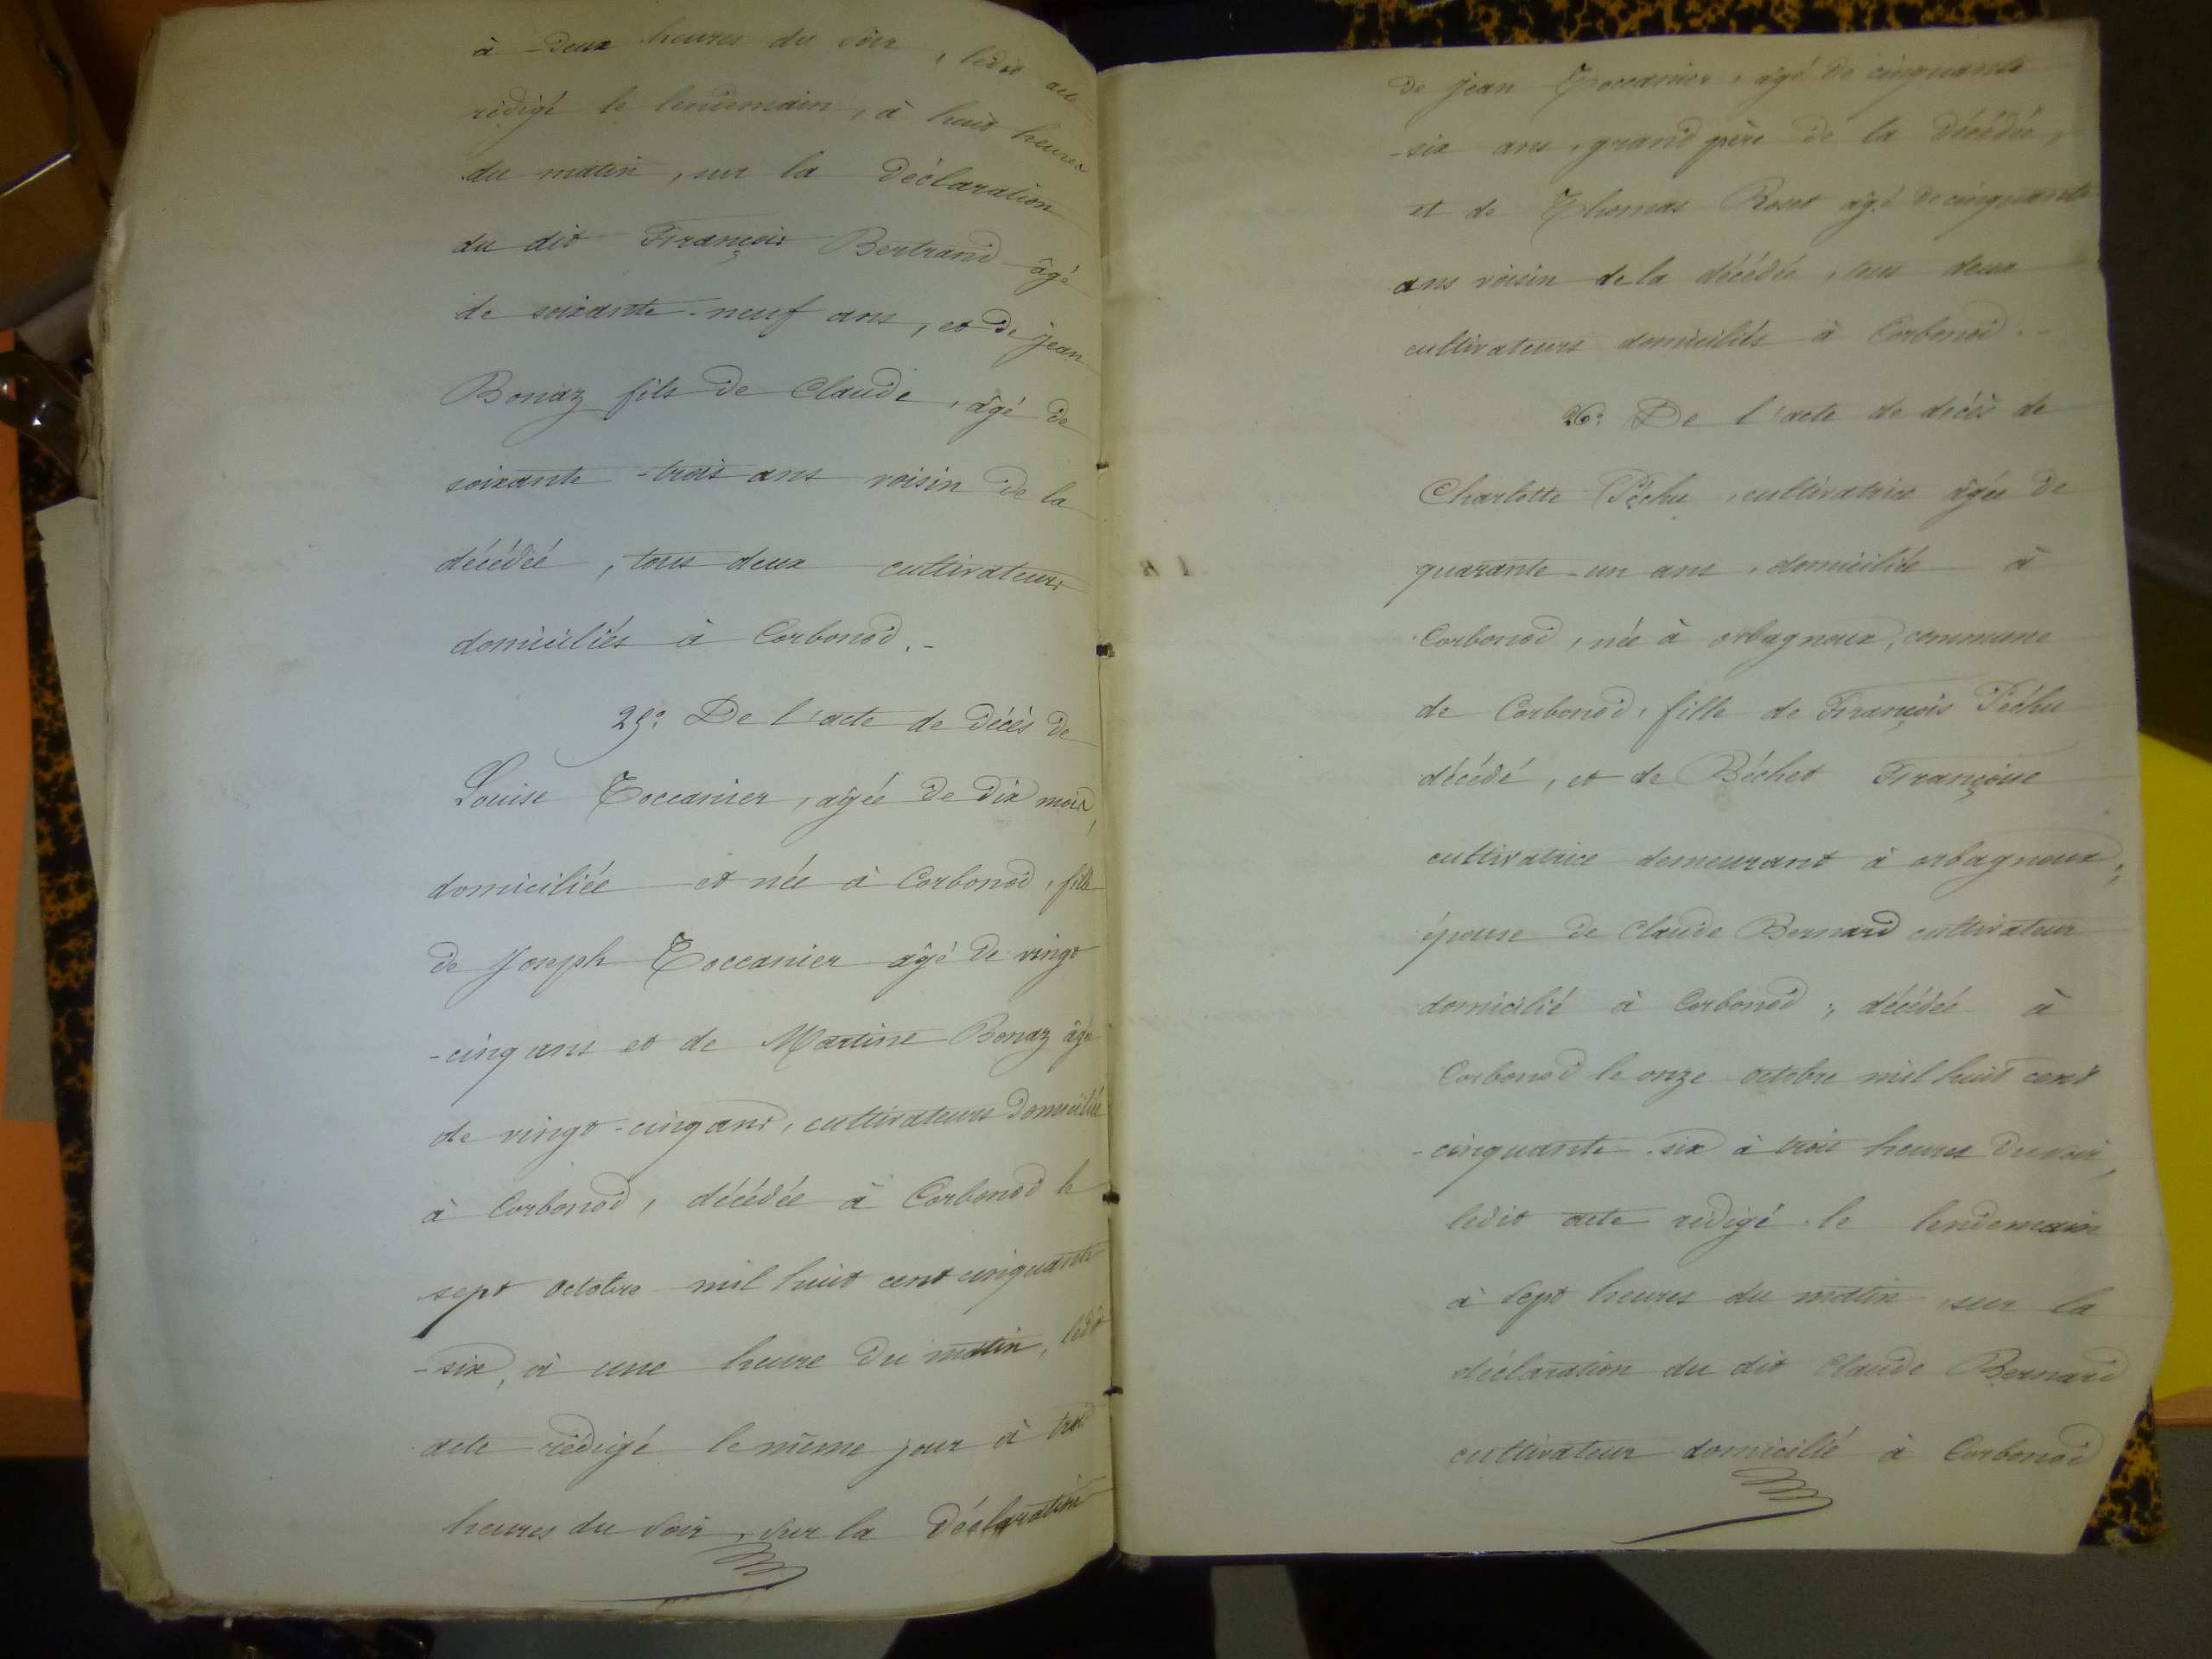 à deux heures du soir, ledit acte
rédigé le lendemain, à huit heures
du matin, sur la déclaration
du dit François Bertrand âgé
de soixante-neuf ans, et de jean
Bonaz fils de Claude, âgé de
soixante-trois ans voisin de la
décédée, tous deux cultivateurs
domiciliés à Corbonod.-
25°. De l'acte de décès de
Louise Toccanier, âgée de dix mois,
domiciliée et née à Corbonod, fille
de Joseph Toccanier âgé de vingt
-cinq ans et de Martine Bonaz âgée
de vingt-cinq ans, cultivateurs domiciliés
à Corbonod, décédée à Corbonod le
sept octobre mil huit cent cinquante
-six, à une heure du matin, ledit
acte rédigé le même jour à trois
heures du soir, sur la déclaration
de jean Toccanier, âgé de cinquante
-six ans, grand père de la décédée,
et de Thomas Roset âgé de cinquante
ans voisin de la décédée, tous deux
cultivateurs domiciliés à Corbonod.-
26°. De l'acte de décès de
Charlotte Péchu, cultivatrice âgée de
quarante-un ans, domiciliée à
Corbonod, née à orbagnoux, commune
de Corbonod, fille de François Péchu
décédé, et de Béchet Françoise
cultivatrice demeurant à orbagnoux;
épouse de Claude Bernard cultivateur
domicilié à Corbonod; décédée à
Corbonod le onze octobre mil huit cent
-cinquante-six à trois heures du soir,
ledit acte rédigé le lendemain
à sept heures du matin, sur la
déclaration du dit Claude Bernard
cultivateur domicilié à Corbonod